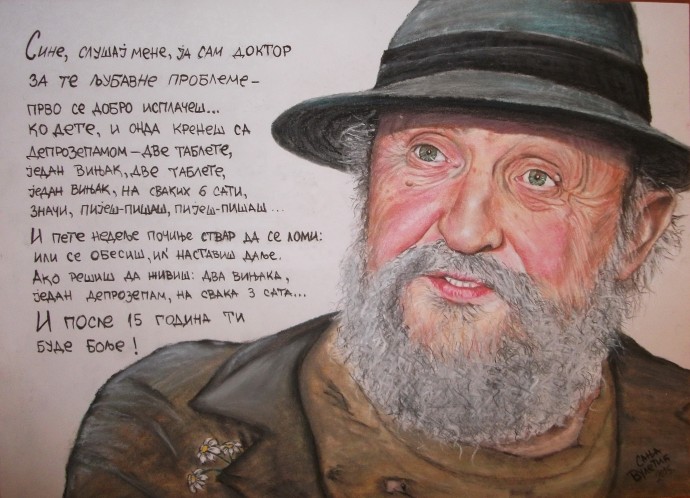 Сине, слушај мене, ја сам доктор
за те љубавне проблеме –
прво се добро исплачеш...
ко дете, и онда кренеш са
депрозепамом – две таблете,
један вињак, две таблете,
један вињак, на сваких 6 сати,
значи, пијеш-пишаш, пијеш-пишаш...
И пете недеље почиње ствар да се ломи:
или се обесиш, ил' наставиш даље.
Ако решиш да живиш: два вињака,
један депрозепам, на свака 3 сата...
И после 15 година ти
буде боље!
Сања
Вулетић